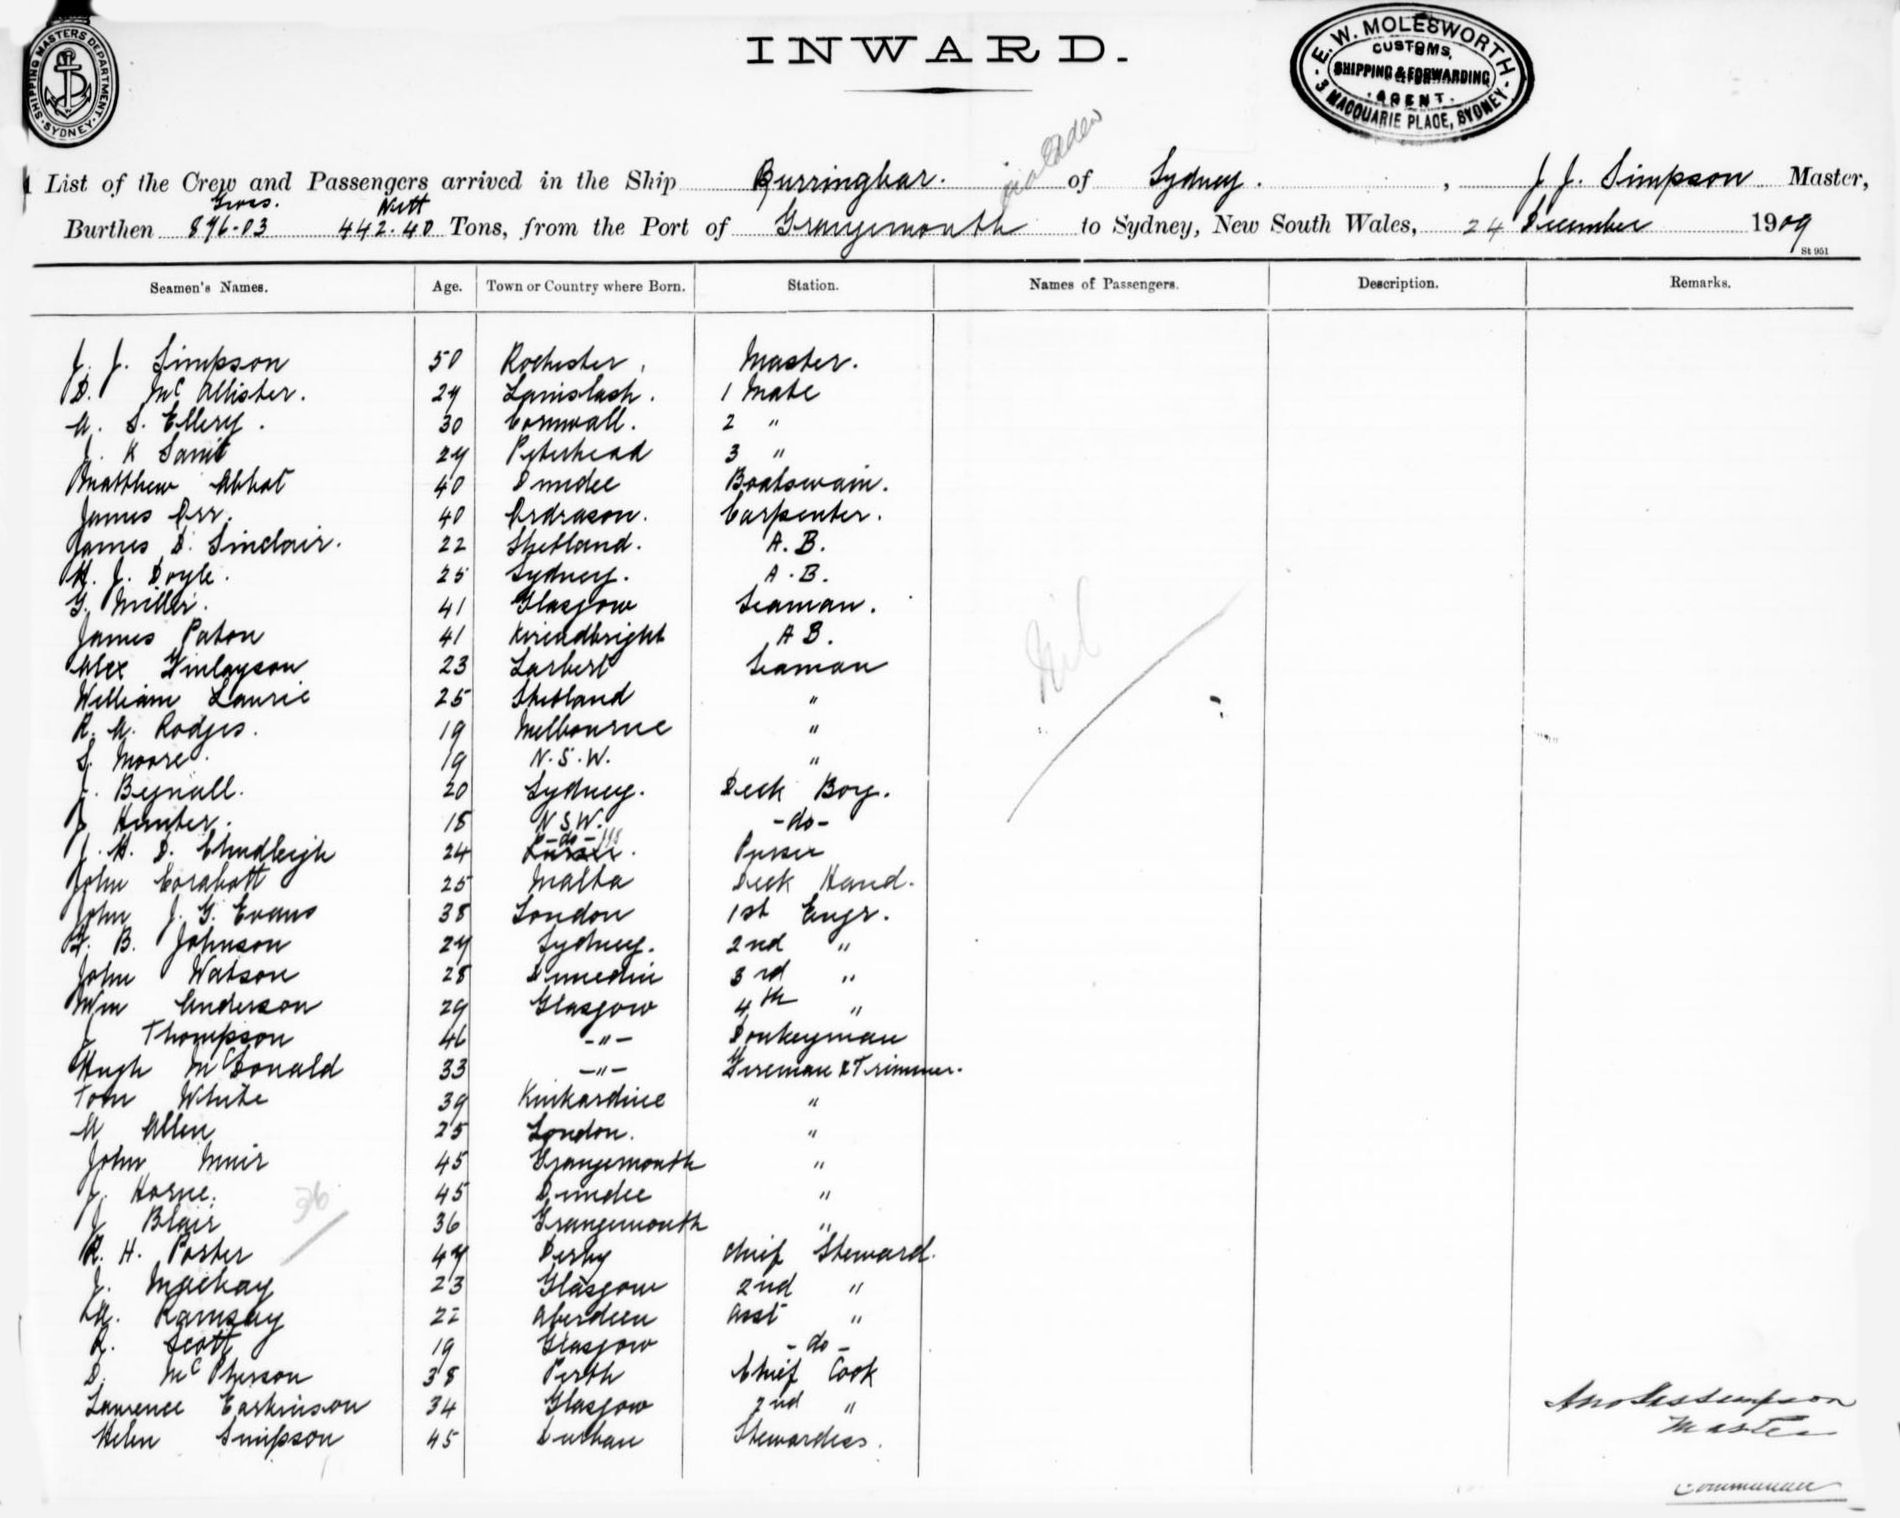 SHIPPING MASTERS DEPARTMENT. SYDNEY.
INWARD.
E. W. MOLESWORTH
CUSTOMS,
SHIPPING & FORWARDING
AGENT.
3 MACQUARIE PLACE, SYDNEY.
List of the Crew and Passengers arrived in the Ship Burringbar. of Sydney. , J. J. Simpson Master,
Gross. Nett
Burthen 896-03 442.40 Tons, from the Port of Grangemouth to Sydney, New South Wales, 24 December 1909
St 951
Seamen's Names. Age. Town or Country where Born. Station. Names of Passengers. Description. Remarks.
J. J. Simpson 50 Rochester, Master.
D. McAllister. 29 Lamslash. 1 Mate
A. S. Ellery. 30 Cornwall. 2 "
J. K 29 Peterhead 3 "
Matthew Abbot 40 Dundee Boatswain.
James Orr. 40 Ardrason. Carpenter.
James D. Sinclair. 22 Shetland. A.B.
H. J. Doyle. 25 Sydney. A.B.
G. Miller. 41 Glasgow Seaman.
James Paton 41 Kricudbright A B.
Alex Finlayson 23 Larbert Seaman
William Laurie 25 Shetland "
R. A. Rodges. 19 Melbourne "
S. Moore. 19 N.S.W. "
J. Bignall. 20 Sydney. Deck Boy.
J Hunter. 18 N S W. -do-
J. H. D. Chudleigh 24 -do- Purser
John 25 Malta Deck Hand.
John J. G. Evans 38 London 1st Engr.
B. Johnson 29 Sydney. 2nd "
John Watson 28 Dunedin 3rd "
Wm Anderson 29 Glasgow 4th "
J Thompson 46 -"- Donkeyman
Hugh McDonald 33 -"- Fireman & Trimmer.
Tom White 39 Kinkardine "
A Allen 25 London. "
John Muir 45 Grangemouth "
J. Horne. 45 Dundee "
36
J Blair 36 Grangemouth "
R. H. Poster 49 Derby Chief Steward.
J. Mackay 23 Glasgow 2nd "
A. Ramsay 22 Aberdeen Asst "
R. Scott 19 Glasgow -do-
D. McPherson 38 Perth Chief Cook
Lawrence Earkinson 34 Glasgow 2nd "
Helen Simpson 45 Durban Stewardess.
Nil
Simpson
Master